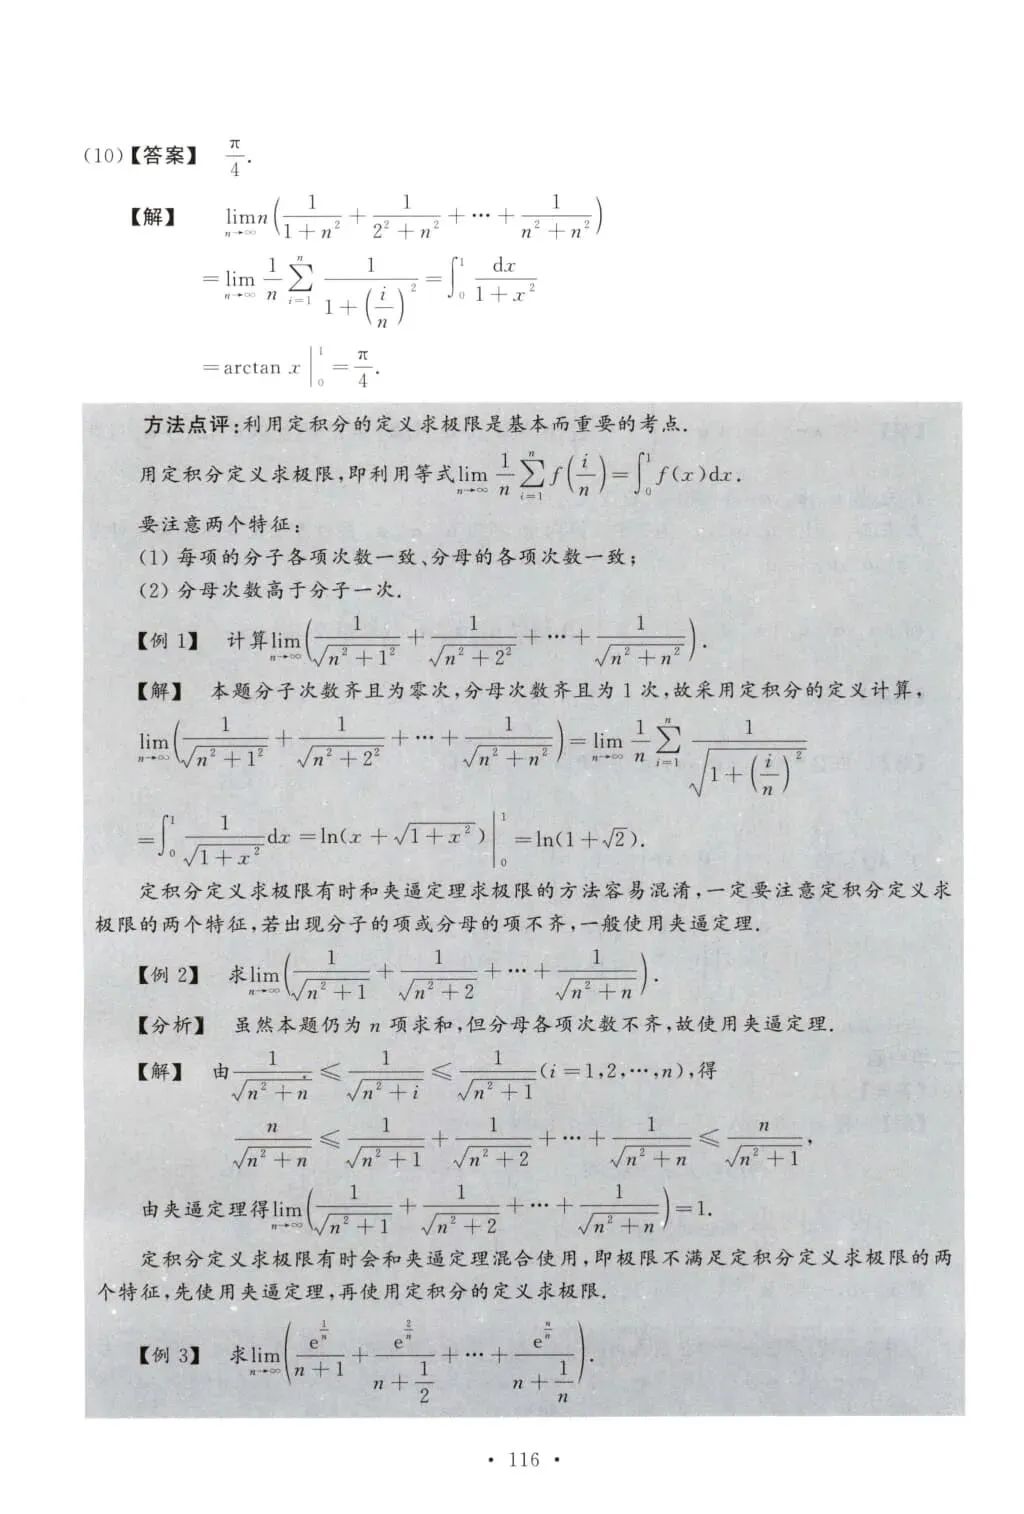 (10)【答案】 π/4.
【解】 lim_{n→∞} n(1/(1+n²) + 1/(2²+n²) + ⋯ + 1/(n²+n²))
=lim_{n→∞} 1/n ∑_{i=1}^{n} 1/(1+(i/n)²) = ∫₀¹ dx/(1+x²)
=arctan x|₀¹ = π/4.
方法点评:利用定积分的定义求极限是基本而重要的考点.
用定积分定义求极限,即利用等式lim_{n→∞} 1/n ∑_{i=1}^{n} f(i/n) = ∫₀¹ f(x)dx.
要注意两个特征:
(1) 每项的分子各项次数一致、分母的各项次数一致;
(2) 分母次数高于分子一次.
【例 1】 计算lim_{n→∞}(1/√(n²+1²) + 1/√(n²+2²) + ⋯ + 1/√(n²+n²)).
【解】 本题分子次数齐且为零次,分母次数齐且为 1 次,故采用定积分的定义计算,
lim_{n→∞}(1/√(n²+1²) + 1/√(n²+2²) + ⋯ + 1/√(n²+n²)) = lim_{n→∞} 1/n ∑_{i=1}^{n} 1/√(1+(i/n)²)
=∫₀¹ 1/√(1+x²) dx = ln(x+√(1+x²))|₀¹ = ln(1+√2).
定积分定义求极限有时和夹逼定理求极限的方法容易混淆,一定要注意定积分定义求
极限的两个特征,若出现分子的项或分母的项不齐,一般使用夹逼定理.
【例 2】 求lim_{n→∞}(1/√(n²+1) + 1/√(n²+2) + ⋯ + 1/√(n²+n)).
【分析】 虽然本题仍为 n 项求和,但分母各项次数不齐,故使用夹逼定理.
【解】 由 1/√(n²+n) ≤ 1/√(n²+i) ≤ 1/√(n²+1) (i=1,2,⋯,n),得
n/√(n²+n) ≤ 1/√(n²+1) + 1/√(n²+2) + ⋯ + 1/√(n²+n) ≤ n/√(n²+1),
由夹逼定理得lim_{n→∞}(1/√(n²+1) + 1/√(n²+2) + ⋯ + 1/√(n²+n)) = 1.
定积分定义求极限有时会和夹逼定理混合使用,即极限不满足定积分定义求极限的两
个特征,先使用夹逼定理,再使用定积分的定义求极限.
【例 3】 求lim_{n→∞}(e^{1/n}/(n+1) + e^{2/n}/(n+1/2) + ⋯ + e^{n/n}/(n+1/n)).
• 116 •